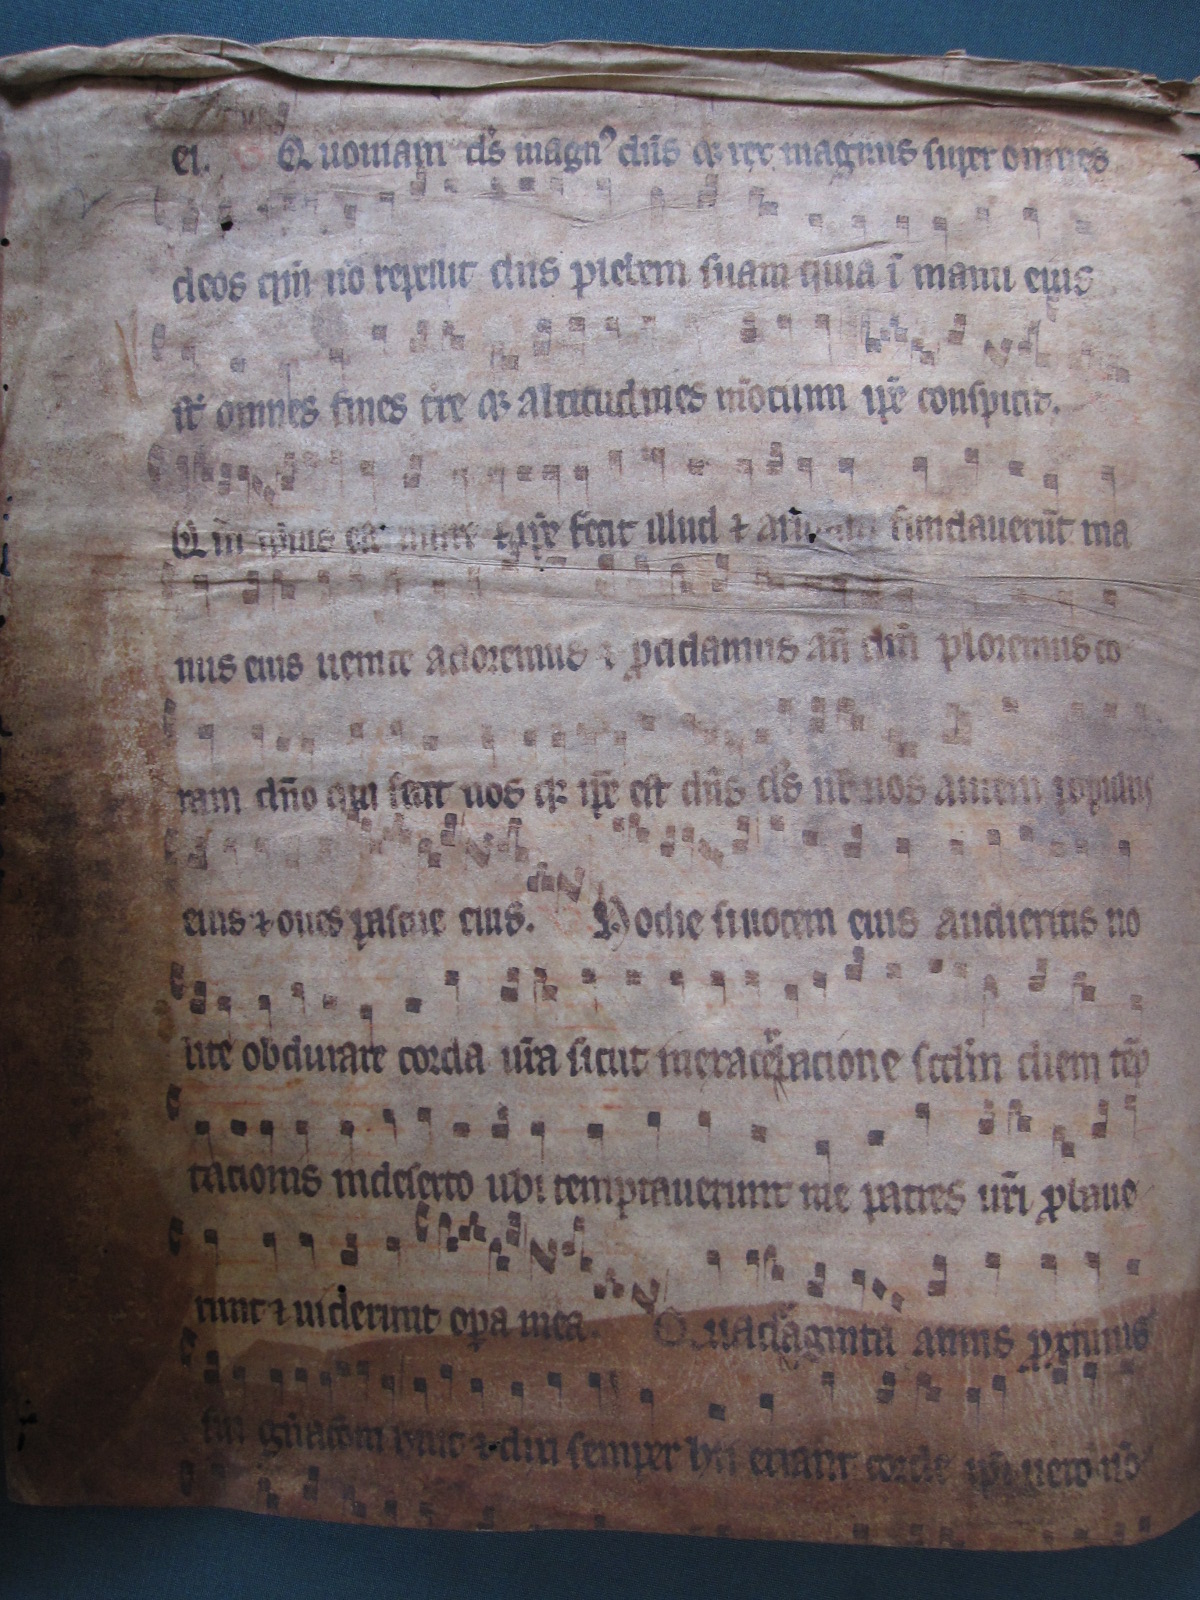 ei. Quoniam ds̄ magnꝰ dn̄s ⁊ rex magnus super omnes
deos qm̄ nō repellit dn̄s plebem suam quia ī manu eius
st̄ omnes fines tr̄e ⁊ altitudines mōtium ip̄e conspicit.
Qm̄ ipsius est mare ⁊ ip̄e fecit illud ⁊ aridam fundauerūt ma
nus eius uenite adoremus ⁊ ꝓcidamus an̄ dm̄ ploremus co
ram dn̄o qui fecit nos qꝛ ip̄e est dn̄s ds̄ nr̄ nos autem populus
eius ⁊ oues pascue eius. Hodie si uocem eius audieritis no
lite obdurare corda ur̄a sicut in exacerbacione scd̄m diem tēp
tacionis in deserto ubi temptauerunt me patres ur̄i ꝓbaue
runt ⁊ uiderunt oꝑa mea. Quadraginta annis ꝓximus
fui gn̄acōni huic ⁊ dixi semper hii errant corde ipi uero nō